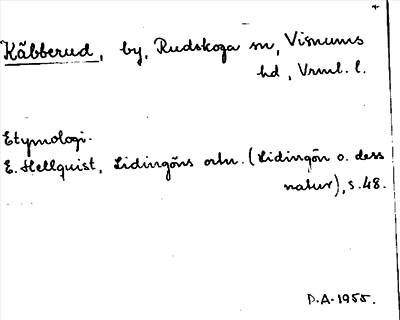 Käbberud, by, Rudskoga sn, Visnums
hd, Vrml. l.
Etymologi.
E. Hellquist, Lidingöns ortn. (Lidingön o. dess
natur), s. 48.
D.A. 1955.